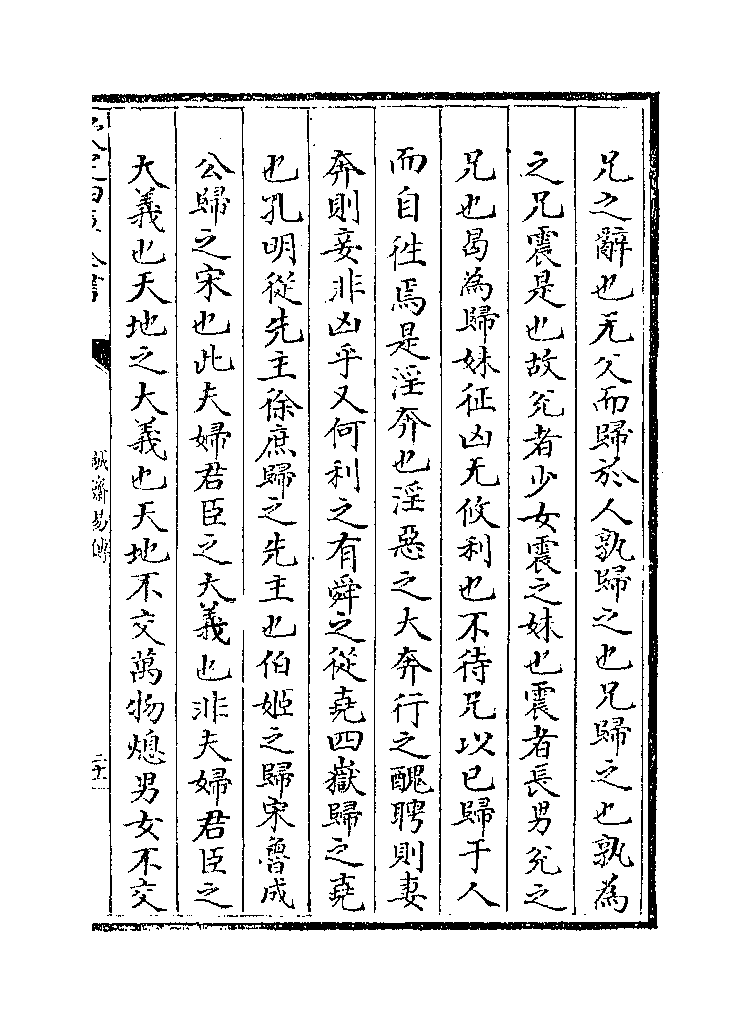 兄之辭也无父而歸於人孰歸之也兄歸之也孰為
之兄震是也故兊者少女震之妹也震者長男兊之
兄也曷為歸妹征凶无攸利也不待兄以已歸于人
而自徃焉是淫奔也淫惡之大奔行之醜聘則妻
奔則妾非凶乎又何利之有舜之從堯四嶽歸之堯
也孔明從先主徐庶歸之先主也伯姬之歸宋魯成
公歸之宋也此夫婦君臣之大義也非夫婦君臣之
大義也天地之大義也天地不交萬物熄男女不交
欽定四庫全書
誠齋易傳